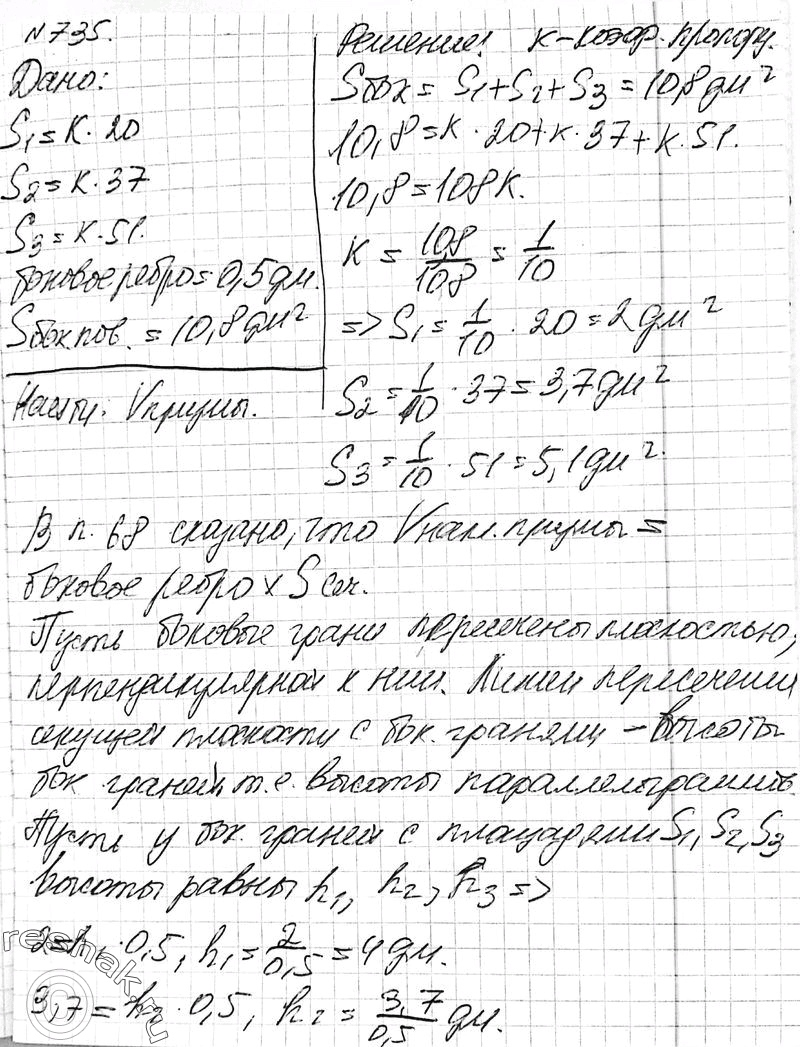 №735.
Дано:
S₁ = К · 20
S₂ = К · 37
S₃ = К · 51.
боковое ребро = 0,5 дм.
Sбок пов. = 10,8 дм²
Найти: Vпризмы.
Решение: К – коэф. пропорц.
Sбок = S₁ + S₂ + S₃ = 10,8 дм²
10,8 = К · 20 + К · 37 + К · 51.
10,8 = 108К.
К = 10,8/108 = 1/10
=> S₁ = 1/10 · 20 = 2 дм²
S₂ = 1/10 · 37 = 3,7 дм²
S₃ = 1/10 · 51 = 5,1 дм².
В п. 68 сказано, что Vнакл. призмы =
боковое ребро x Sсеч.
Пусть боковые грани пересечены плоскостью,
перпендикулярной к ним. Линии пересечения
секущей плоскости с бок. гранями – высоты
бок граней, т.е. высоты параллелограммов.
Пусть у бок. граней с площадями S₁, S₂, S₃
высоты равны h₁, h₂, h₃ =>
2 = h₁ · 0,5, h₁ = 2/0,5 = 4 дм.
3,7 = h₂ · 0,5, h₂ = 3,7/0,5 дм.
©reshak.ru